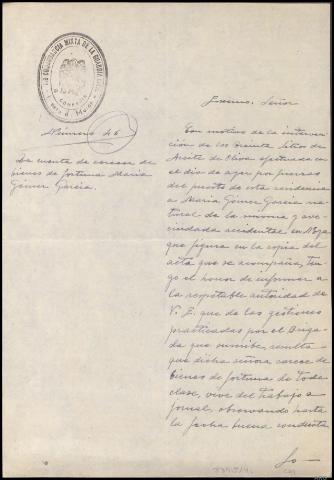 COMANDANCIA MIXTA DE LA GUARDIA CIVIL
Número 46
Da cuenta de carecer de
bienes de fortuna María
Gómez García.
Excmo. Señor
Con motivo de la interven
ción de los treinta litros de
Aceite de Oliva efectuada en
el día de ayer por fuerzas
del puesto de esta residencia
a María Gómez García na
tural de la misma y ave
cindada accidental en
que figura en la copia del
acta que se acompaña, ten
go el honor de informar a
la respetable autoridad de
V. E. que de las gestiones
practicadas por el Briga
da que suscribe, resulta
que dicha señora carece de
bienes de fortuna de toda
clase, vive del trabajo a
jornal, observando hasta
la fecha buena conducta
Lo